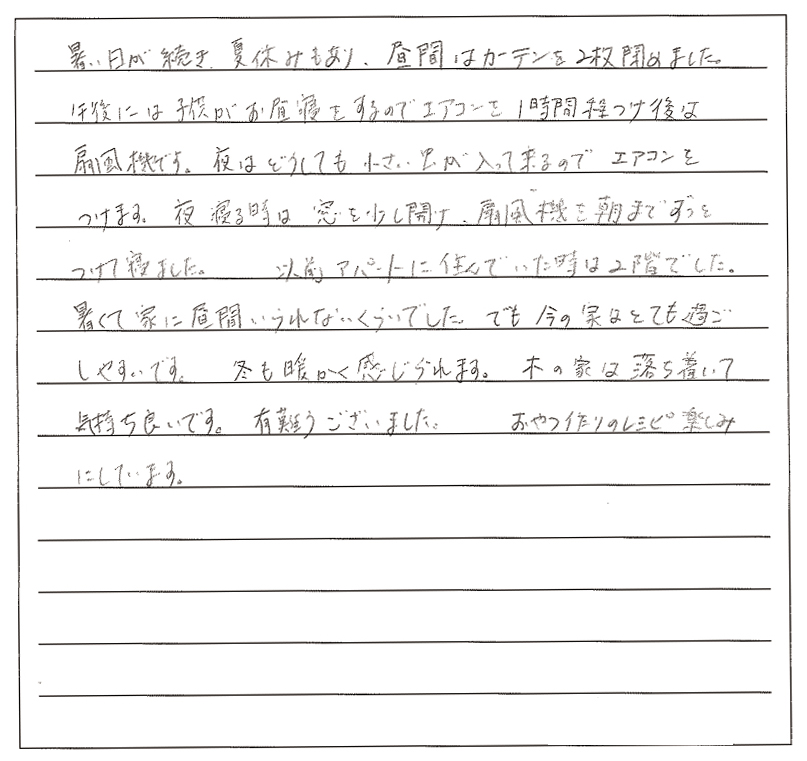 暑い日が続き、夏休みもあり、昼間はカーテンを2枚閉めました。
午後には子供がお昼寝をするのでエアコンを1時間程つけ後は
扇風機です。夜はどうしても小さい虫が入って来るのでエアコンを
つけます。夜寝る時は窓を少し開け、扇風機を朝までずっと
つけて寝ました。 以前アパートに住んでいた時は2階でした。
暑くて家に昼間いられないくらいでした。でも今の家はとても過ご
しやすいです。 冬も暖かく感じられます。木の家は落ち着いて
気持ち良いです。有難うございました。 おやつ作りのレシピ楽しみ
にしています。